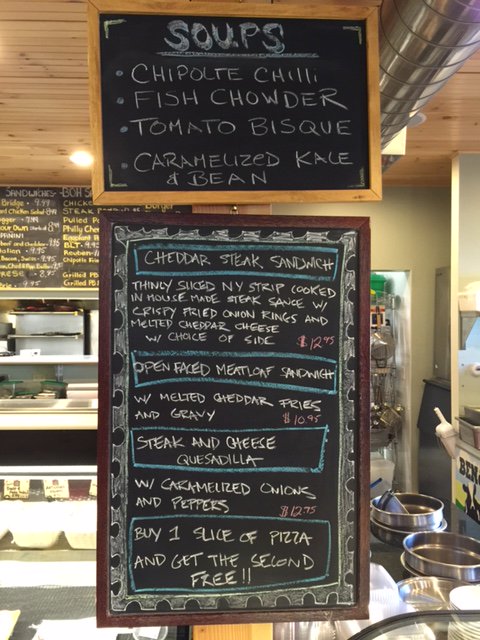 SOUPS
• CHIPOLTE CHILLI
• FISH CHOWDER
• TOMATO BISQUE
• CARAMELIZED KALE
& BEAN
CHEDDAR STEAK SANDWICH
THINLY SLICED NY STRIP COOKED
IN HOUSE MADE STEAK SAUCE W/
CRISPY FRIED ONION RINGS AND
MELTED CHEDDAR CHEESE
W/ CHOICE OF SIDE $12.95
OPEN FACED MEATLOAF SANDWICH
W/ MELTED CHEDDAR FRIES
AND GRAVY $10.95
STEAK AND CHEESE
QUESADILLA
W/ CARAMELIZED ONIONS
AND PEPPERS
$12.95
BUY 1 SLICE OF PIZZA
AND GET THE SECOND
FREE!!
SANDWICHES
PANINI
BLT
Reuben
BEN